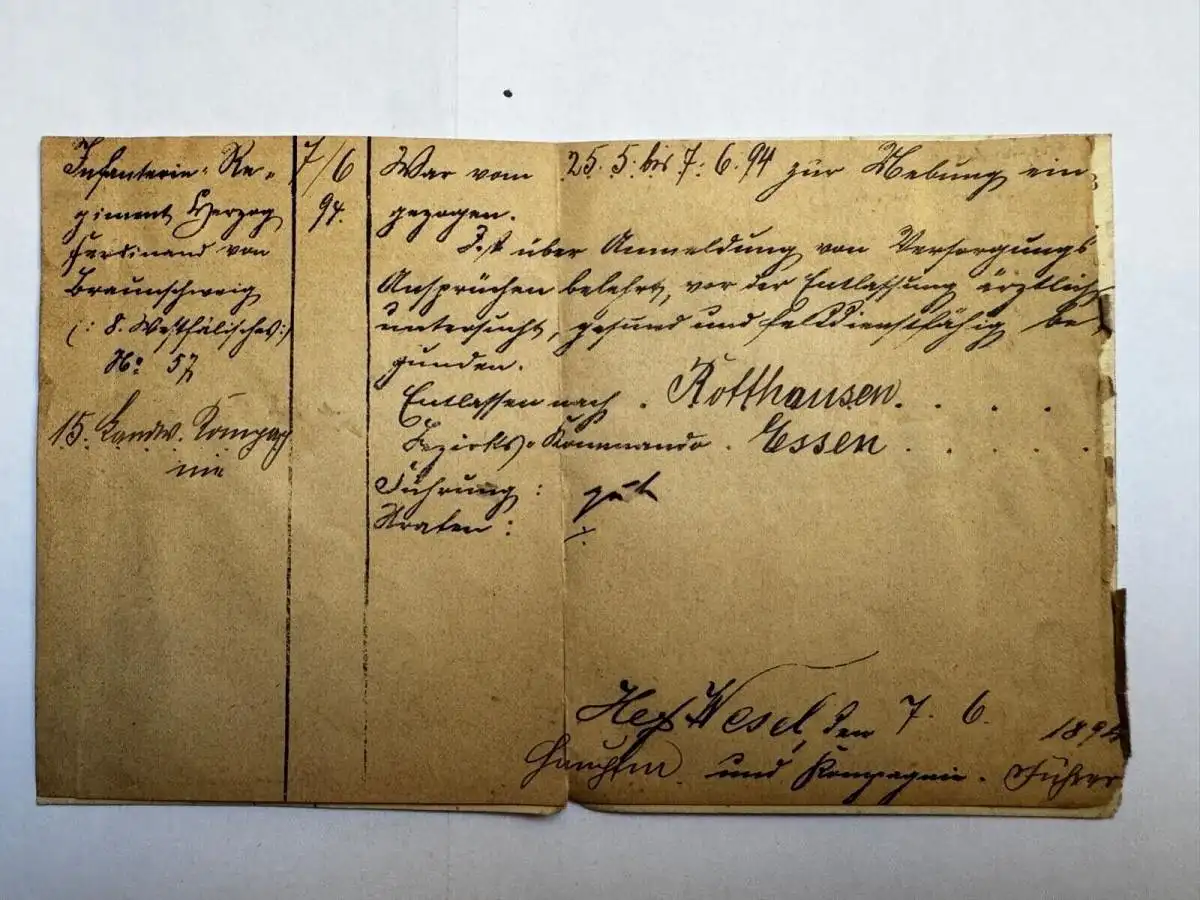 Infanterie-Re-
giment Herzog
Ferdinand von
Braunschweig
(: 8. Westfälisches :)
No 57
15. Landw. Kompag
nie
7/6
94.
War vom 25. 5. bis 7. 6. 94 zur Uebung ein
gezogen.
Ist über Anmeldung von Versorgungs
Ansprüchen belehrt, vor der Entlassung ärztlich
untersucht, gesund und felddienstfähig be
funden.
Entlassen nach . Rotthausen . . . .
Bezirks-Kommando . Essen . . . . .
Führung : gut
Strafen : ÷
Wesel, den 7. 6. 1894
Hauptm. und Kompagnie-Führer